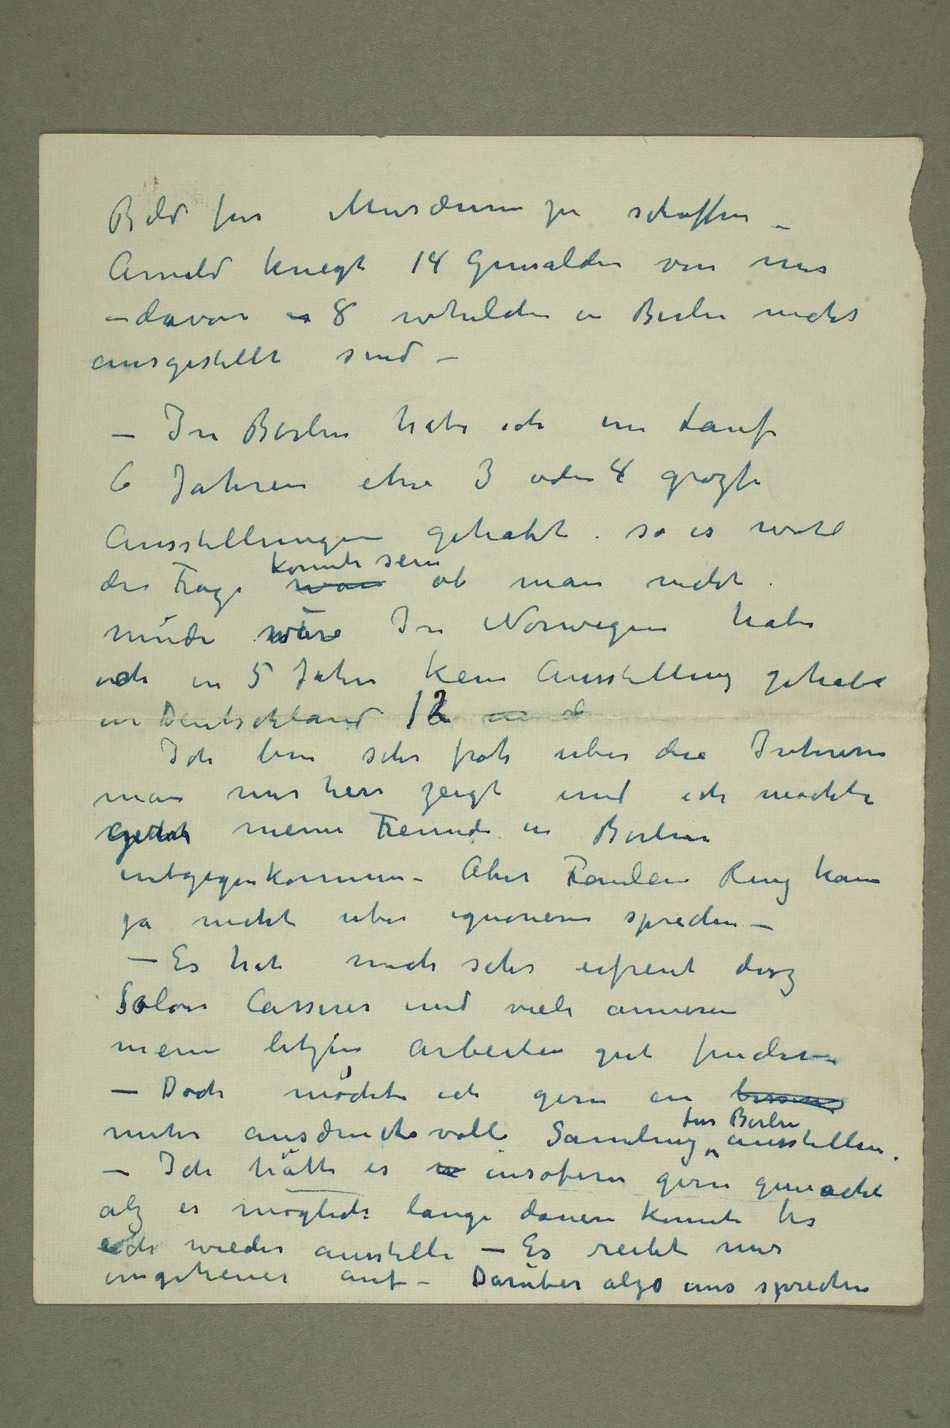 Bild fur Musæum zu schaffen –
Arnold kriegt 14 Gemälder von mir
– davon 8 whelche in Berlin nicht
ausgestellt sind –
– In Berlin habe ich im Lauf
6 Jahren etwa 3 oder 4 grozse
Ausstellungen gehabt. so es wohl
die Frage konnte sein ob man nicht
müde wäre In Norwegen habe
ich in 5 Jahre kein Ausstellung gehabt
in Deutschland 12
Ich bin sehr froh uber die Interesse
man mir hier zeigt und ich möchte
meine Freunde in Berlin
entgegenkommen – Aber Fraulein Ring kann
ja nicht uber ignoneren sprechen –
– Es hat mich sehr erfreut dasz
Salon Cassirer und viele anneren
meine letzten Arbeiten gut finden –
– Doch möchte ich gern ein bessere
mehr ausdrucksvolle Samling fur Berlin ausstellen.
– Ich hätte es insofern gern gemacht
alz es moglichs lange dauern konnte bis
ich wieder ausstelle – Es reibt mir
ungeheuer auf – Darüber alzo uns sprechen